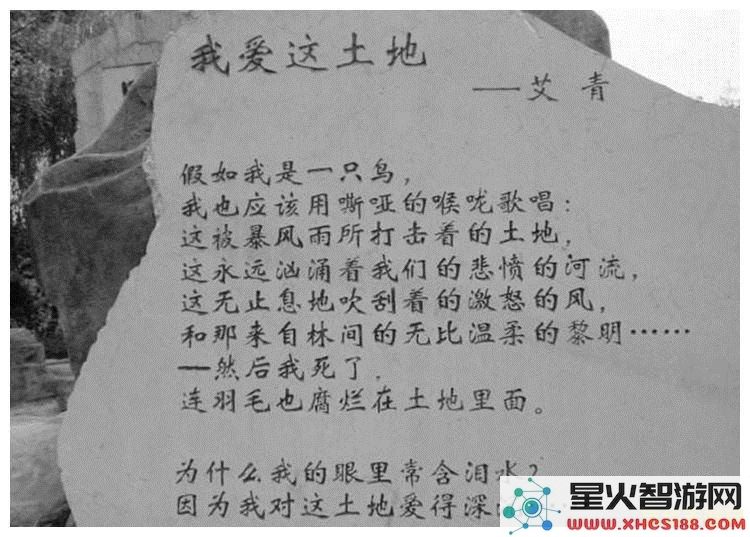 我爱这土地
——艾青
假如我是一只鸟，
我也应该用嘶哑的喉咙歌唱：
这被暴风雨所打击着的土地，
这永远汹涌着我们的悲愤的河流，
这无止息地吹刮着的激怒的风，
和那来自林间的无比温柔的黎明……
—然后我死了，
连羽毛也腐烂在土地里面。
为什么我的眼里常含泪水？
因为我对这土地爱得深
星火智游网
WWW.XHCS188.COM